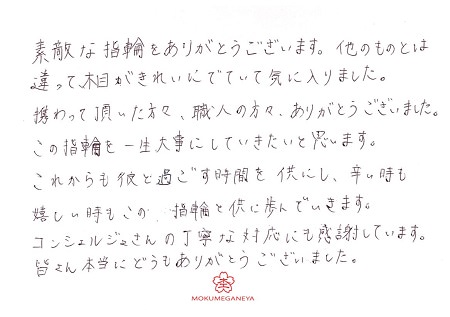 素敵な指輪をありがとうございます。他のものとは
違って、木目がきれいにでていて気に入りました。
携わって頂いた方々、職人の方々、ありがとうございました。
この指輪を一生大事にしていきたいと思います。
これからも彼と過ごす時間を供にし、辛い時も
嬉しい時もこの指輪と供に歩んでいきます。
コンシェルジュさんの丁寧な対応にも感謝しています。
皆さん本当にどうもありがとうございました。
MOKUMEGANEYA